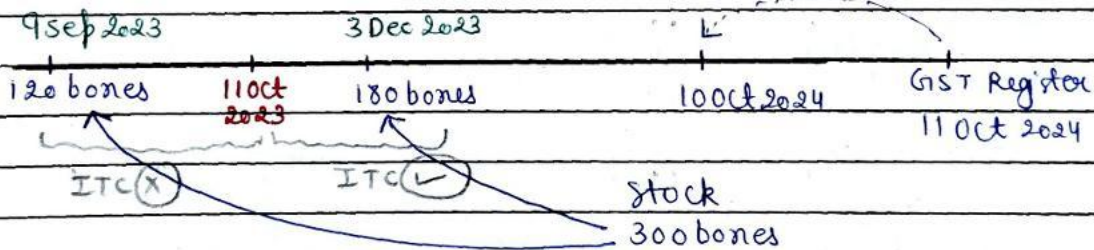 9 Sep 2023 3 Dec 2023
120 bones 11 Oct 2023 180 bones 10 Oct 2024 GST Register
11 Oct 2024
ITC (x) ITC (✓) Stock
300 bones